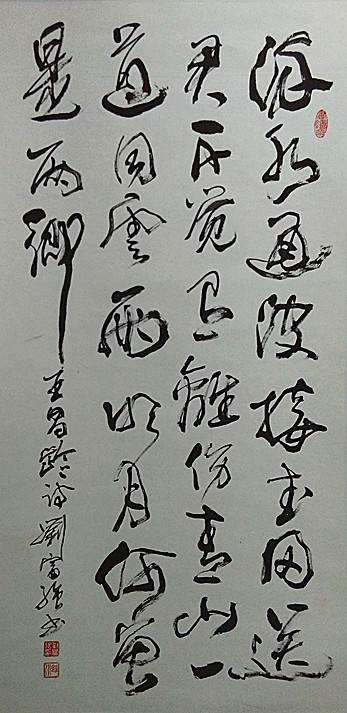 沅水通波接武冈送
君不觉有離伤青山一
道同雲雨明月何曾
是两鄉
王昌龄诗 劉富 书